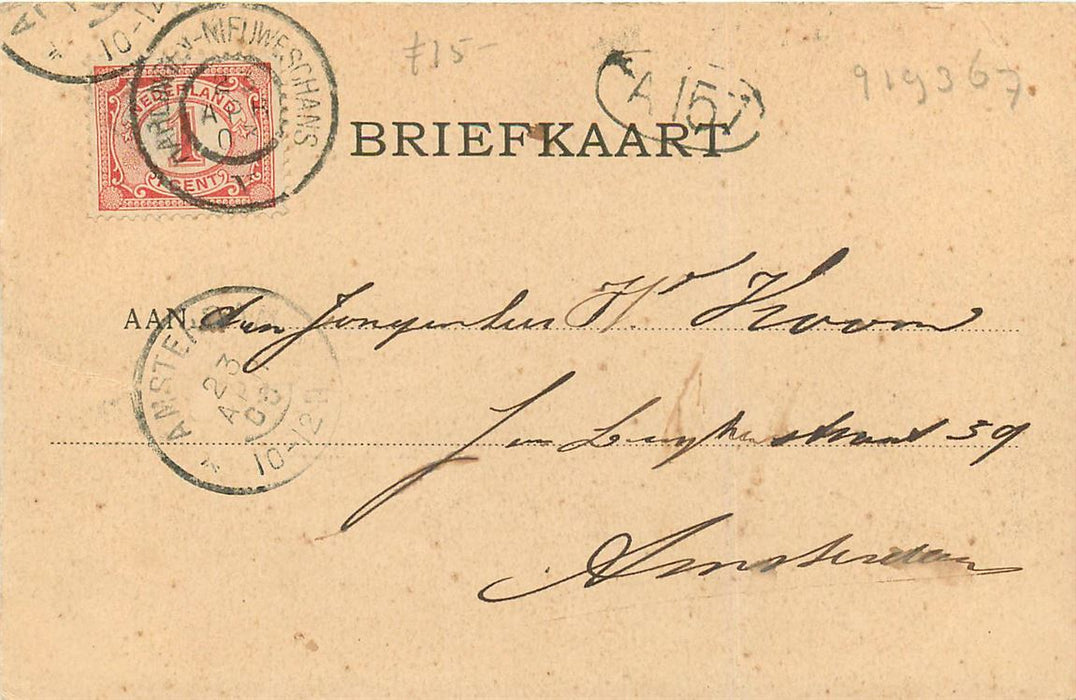 10-12
HARLINGEN-NIEUWESCHANS
£15-
A 157
919367
NEDERLAND
1
CENT
BRIEFKAART
AAN den Jongenheer H. Kroon
AMSTE
23
10-12
Jan Luykenstraat 59
Amsterdam